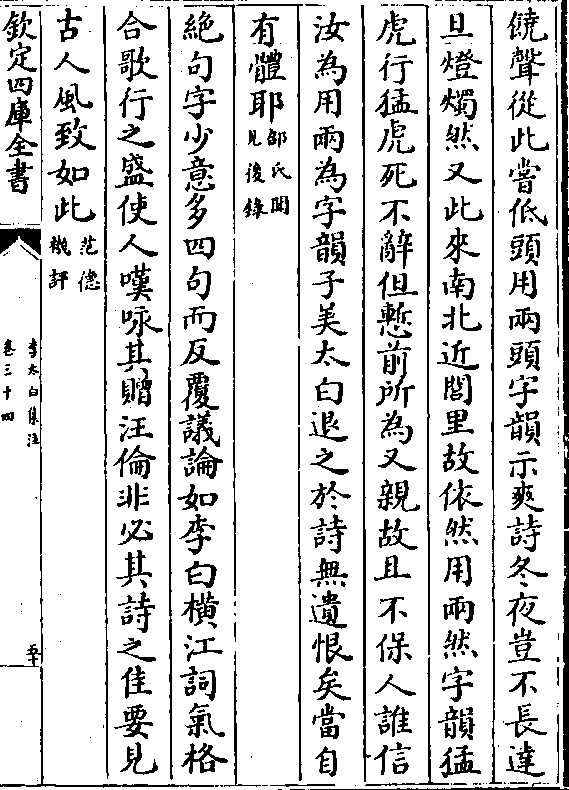 饒聲從此嘗低頭用兩頭字韻示爽詩冬夜豈不長達
旦燈燭然又此來南北近閭里故依然用兩然字韻猛
虎行猛虎死不辭但慙前所為又親故且不保人誰信
汝為用兩為字韻子美太白退之於詩無遺恨矣當自
有體耶邵氏聞
見後錄
絶句字少意多四句而反覆議論如李白橫江詞氣格
合歌行之盛使人嘆咏其贈汪倫非必其詩之佳要見
古人風致如此范德
機評
欽定四庫全書
李太白集注
卷三十四
五十